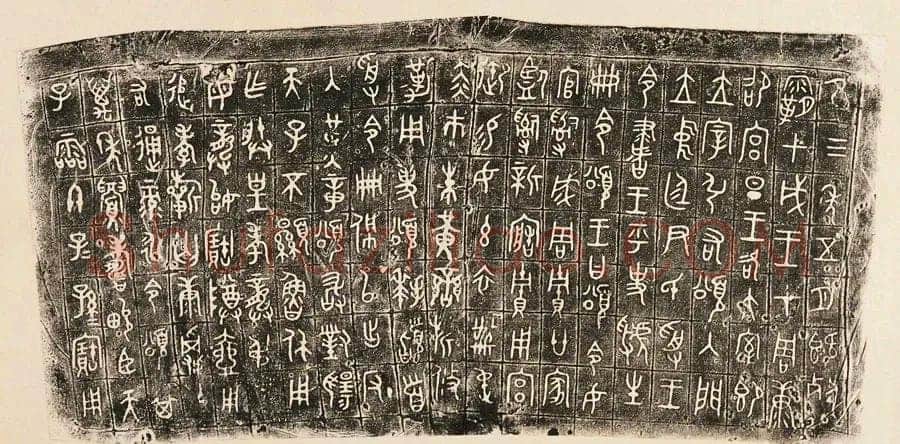 隹三年五月既死
霸甲戌王才周康
卲宮旦王各大室即
立宰引右頌入門
立中廷尹氏受王
令書王乎史虢生
冊令頌王曰頌令女
官𤔲成周貯廿家
監𤔲新造貯用宮
御易女玄衣黹屯
赤市朱黃鑾旂攸
勒用事頌拜𩒨首
受令冊佩以出反
入堇章頌敢對揚
天子不顯魯休用
乍朕皇考龏弔皇
母龏始寶尊壺用
追孝祈匄康
右通彔永令頌其
萬年眉壽畯臣天
子霝冬子孫寶用